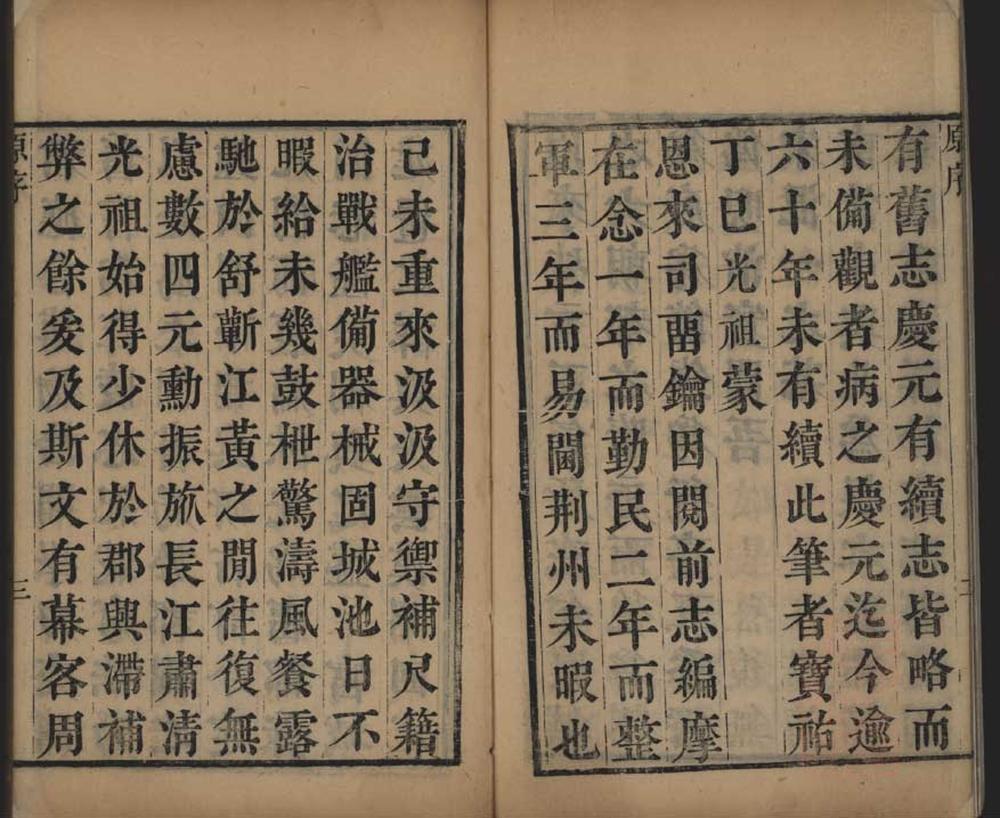 有舊志慶元有續志皆略而
未備觀者病之慶元迄今逾
六十年未有續此筆者寶祐
丁巳光祖蒙
恩來司畱鑰因閱前志編摩
在念一年而勤民二年而整
軍三年而易閫荆州未暇也
原序
二
己未重來汲汲守禦補尺籍
治戰艦備器械固城池日不
暇給未幾鼓枻驚濤風餐露
馳於舒蘄江黃之閒往復無
慮數四元勳振旅長江肅清
光祖始得少休於郡興滯補
弊之餘爰及斯文有幕客周
原序
三